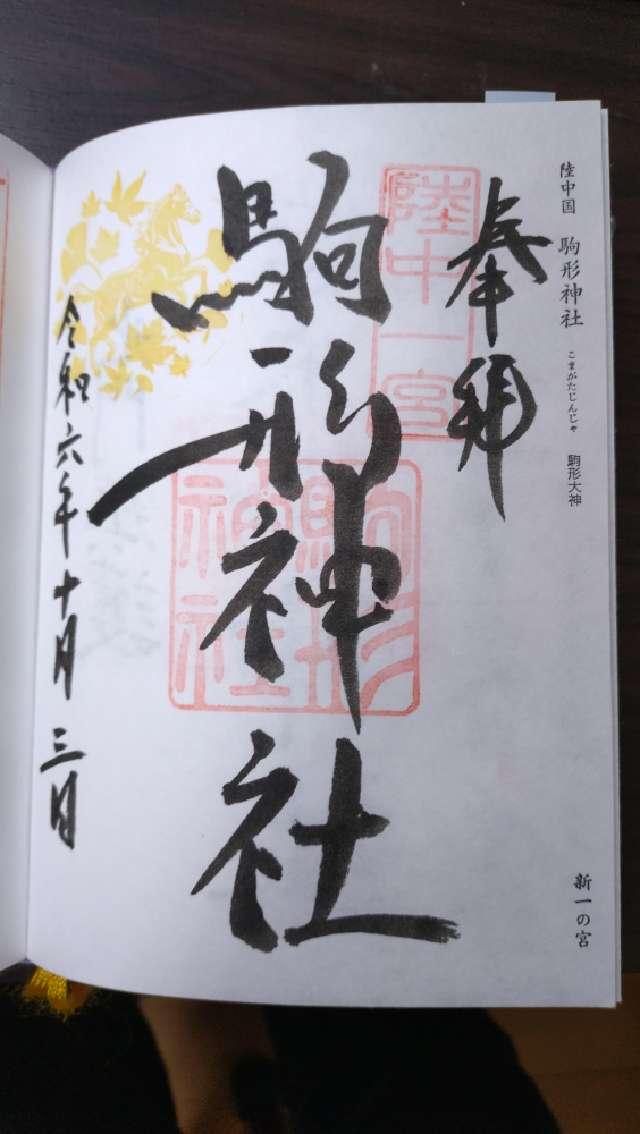 陸中国 駒形神社 こまがたじんじゃ 駒形大神
新一の宮
奉拝
陸中一宮
駒形神社
駒形神社
令和六年十月三日